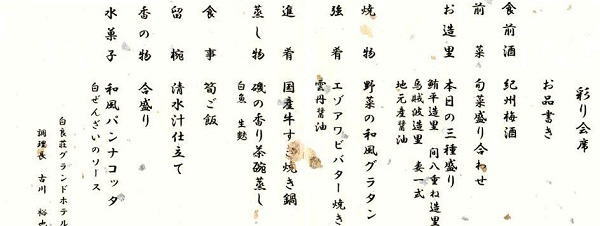 彩り会席
お品書き
食前酒 紀州梅酒
前菜 旬菜盛り合わせ
お造里 本日の三種盛り
鮪平造里 間八重ね造里
烏賊波造里 妻一式
地元産醤油
焼物 野菜の和風グラタン
強肴 エゾアワビバター焼き
雲丹醤油
進肴 国産牛すき焼き鍋
蒸し物 磯の香り茶碗蒸し
白魚 生麩
食事 筍ご飯
留椀 清水汁仕立て
香の物 合盛り
水菓子 和風パンナコッタ
白ぜんざいのソース
白良荘グランドホテル
調理長 古川 裕